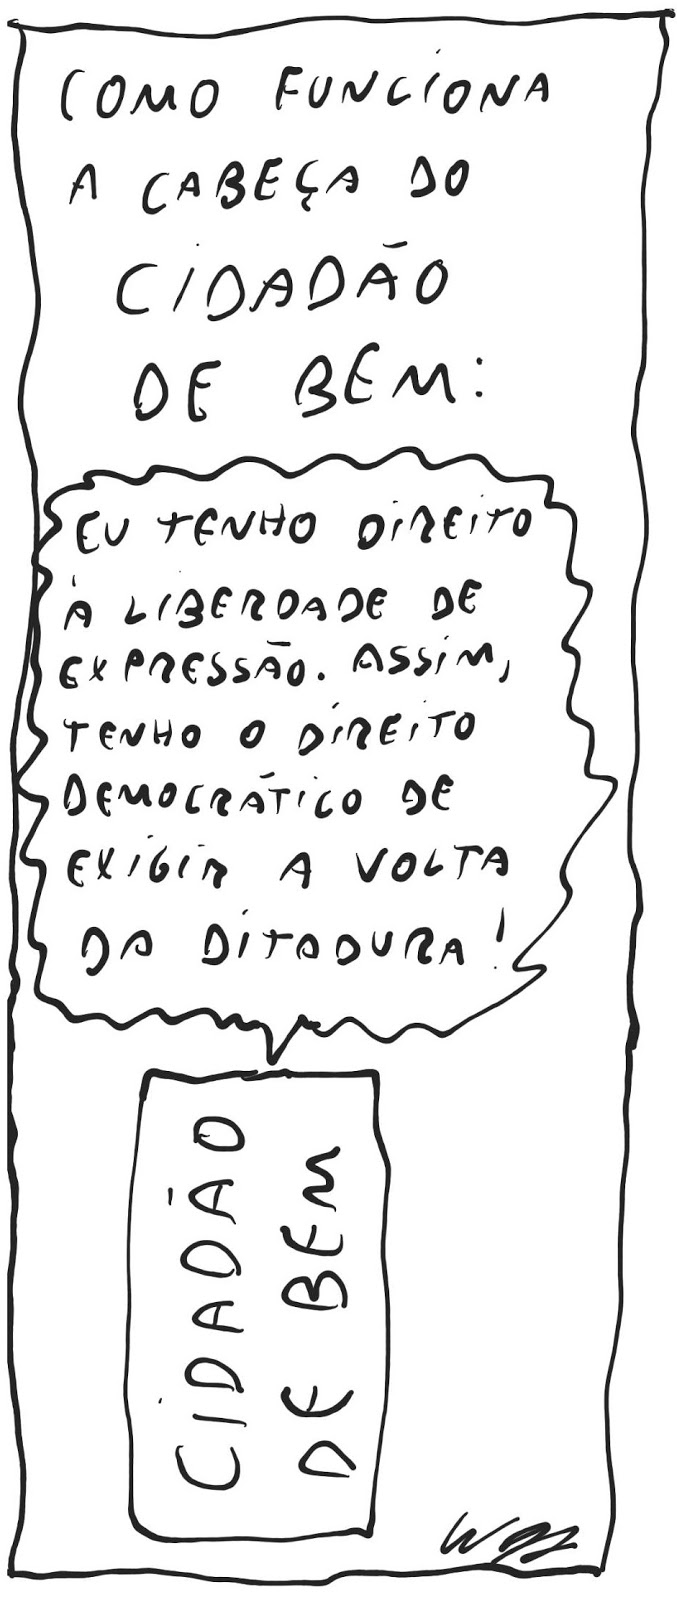 COMO FUNCIONA
A CABEÇA DO
CIDADÃO
DE BEM:
EU TENHO DIREITO
À LIBERDADE DE
EXPRESSÃO. ASSIM,
TENHO O DIREITO
DEMOCRÁTICO DE
EXIGIR A VOLTA
DA DITADURA!
CIDADÃO
DE BEM